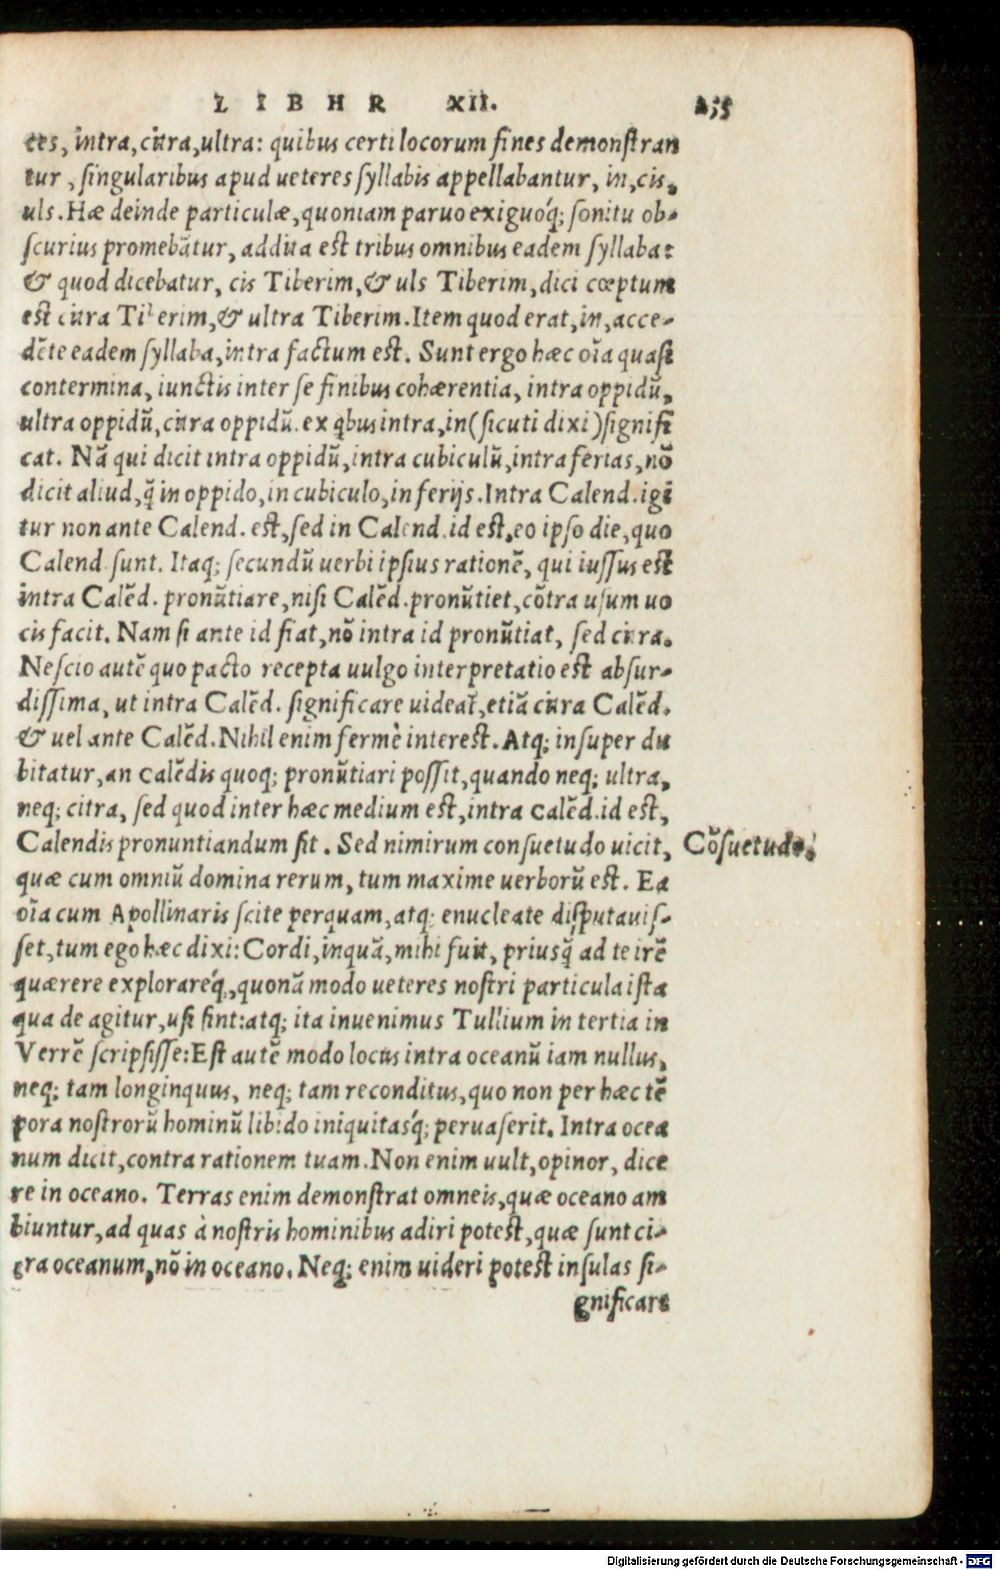 LIBER XII. 255
ces, intra, citra, ultra: quibus certi locorum fines demonstran
tur, singularibus apud ueteres syllabis appellabantur, in, cis,
uls. Hæ deinde particulæ, quoniam paruo exiguóq; sonitu ob-
scurius promebãtur, addita est tribus omnibus eadem syllaba:
& quod dicebatur, cis Tiberim, & uls Tiberim, dici cœptum
est citra Tiberim, & ultra Tiberim. Item quod erat, in, acce-
dẽte eadem syllaba, intra factum est. Sunt ergo hæc oĩa quasi
contermina, iunctis inter se finibus cohærentia, intra oppidũ,
ultra oppidũ, citra oppidũ. ex q̃bus intra, in (sicuti dixi) signifi
cat. Nã qui dicit intra oppidũ, intra cubiculũ, intra ferias, nõ
dicit aliud, q̃ in oppido, in cubiculo, in ferijs. Intra Calend. igi
tur non ante Calend. est, sed in Calend. id est, eo ipso die, quo
Calend. sunt. Itaq; secundũ uerbi ipsius rationẽ, qui iussus est
intra Calẽd. pronũtiare, nisi Calẽd. pronũtiet, cõtra usum uo
cis facit. Nam si ante id fiat, nõ intra id pronũtiat, sed citra.
Nescio autẽ quo pacto recepta uulgo interpretatio est absur-
dissima, ut intra Calẽd. significare uideat̃, etiã citra Calẽd.
& uel ante Calẽd. Nihil enim fermè interest. Atq; insuper du
bitatur, an Calẽdis quoq; pronũtiari possit, quando neq; ultra,
neq; citra, sed quod inter hæc medium est, intra Calẽd. id est,
Calendis pronuntiandum sit. Sed nimirum consuetudo uicit,
Cõsuetudo.
quæ cum omniũ domina rerum, tum maxime uerborũ est. Ea
oĩa cum Apollinaris scite perquam, atq; enucleate disputauis-
set, tum ego hæc dixi: Cordi, inquã, mihi fuit, priusq̃ ad te irẽ
quærere explorareq́;, quonã modo ueteres nostri particula ista
qua de agitur, usi sint: atq; ita inuenimus Tullium in tertia in
Verrẽ scripsisse: Est autẽ modo locus intra oceanũ iam nullus,
neq; tam longinquus, neq; tam reconditus, quo non per hæc tẽ
pora nostrorũ hominũ libido iniquitasq́; peruaserit. Intra ocea
num dicit, contra rationem tuam. Non enim uult, opinor, dice
re in oceano. Terras enim demonstrat omneis, quæ oceano am
biuntur, ad quas à nostris hominibus adiri potest, quæ sunt ci-
tra oceanum, nõ in oceano. Neq; enim uideri potest insulas si-
gnificare
Digitalisierung gefördert durch die Deutsche Forschungsgemeinschaft - DFG